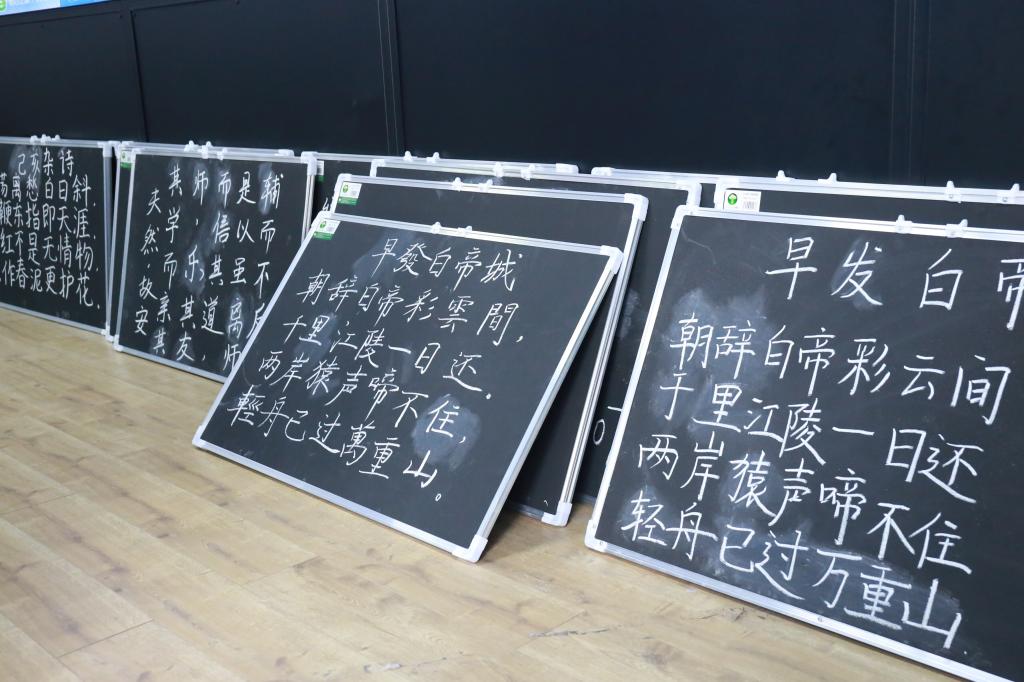 己亥杂诗
荡离愁白日斜,
鞭东指即天涯.
红不是无情物,
作春泥更护花.
夫然故安
其学而亲其
师,乐其友,
而信其道
是以虽离师
辅而不
早發白帝城
朝辞白帝彩雲間,
千里江陵一日还.
两岸猿声啼不住,
輕舟已过萬重山。
早发白帝
朝辞白帝彩云间
千里江陵一日还
两岸猿声啼不住
轻舟已过万重山.